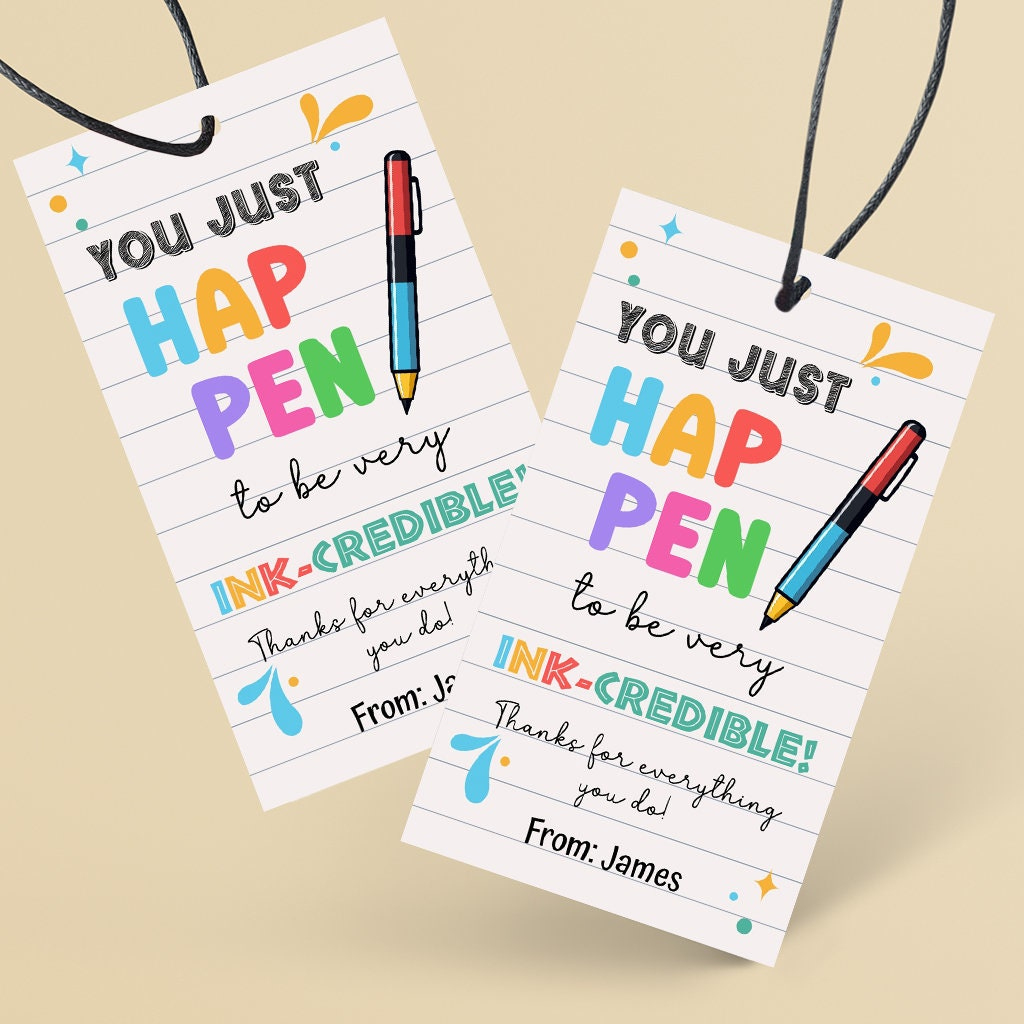 YOU JUST
HAP
PEN
to be very
INK-CREDIBLE!
Thanks for everyth
you do!
From: Ja
YOU JUST
HAP
PEN
to be very
INK-CREDIBLE!
Thanks for everything
you do!
From: James